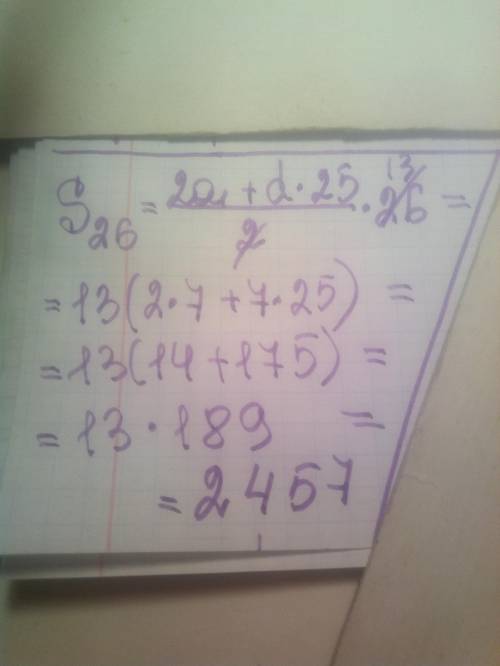 S₂₆ = (2a₁ + d·25)/2 · 26 13 =
= 13(2·7 + 7·25) =
= 13(14 + 175) =
= 13 · 189 =
= 2457